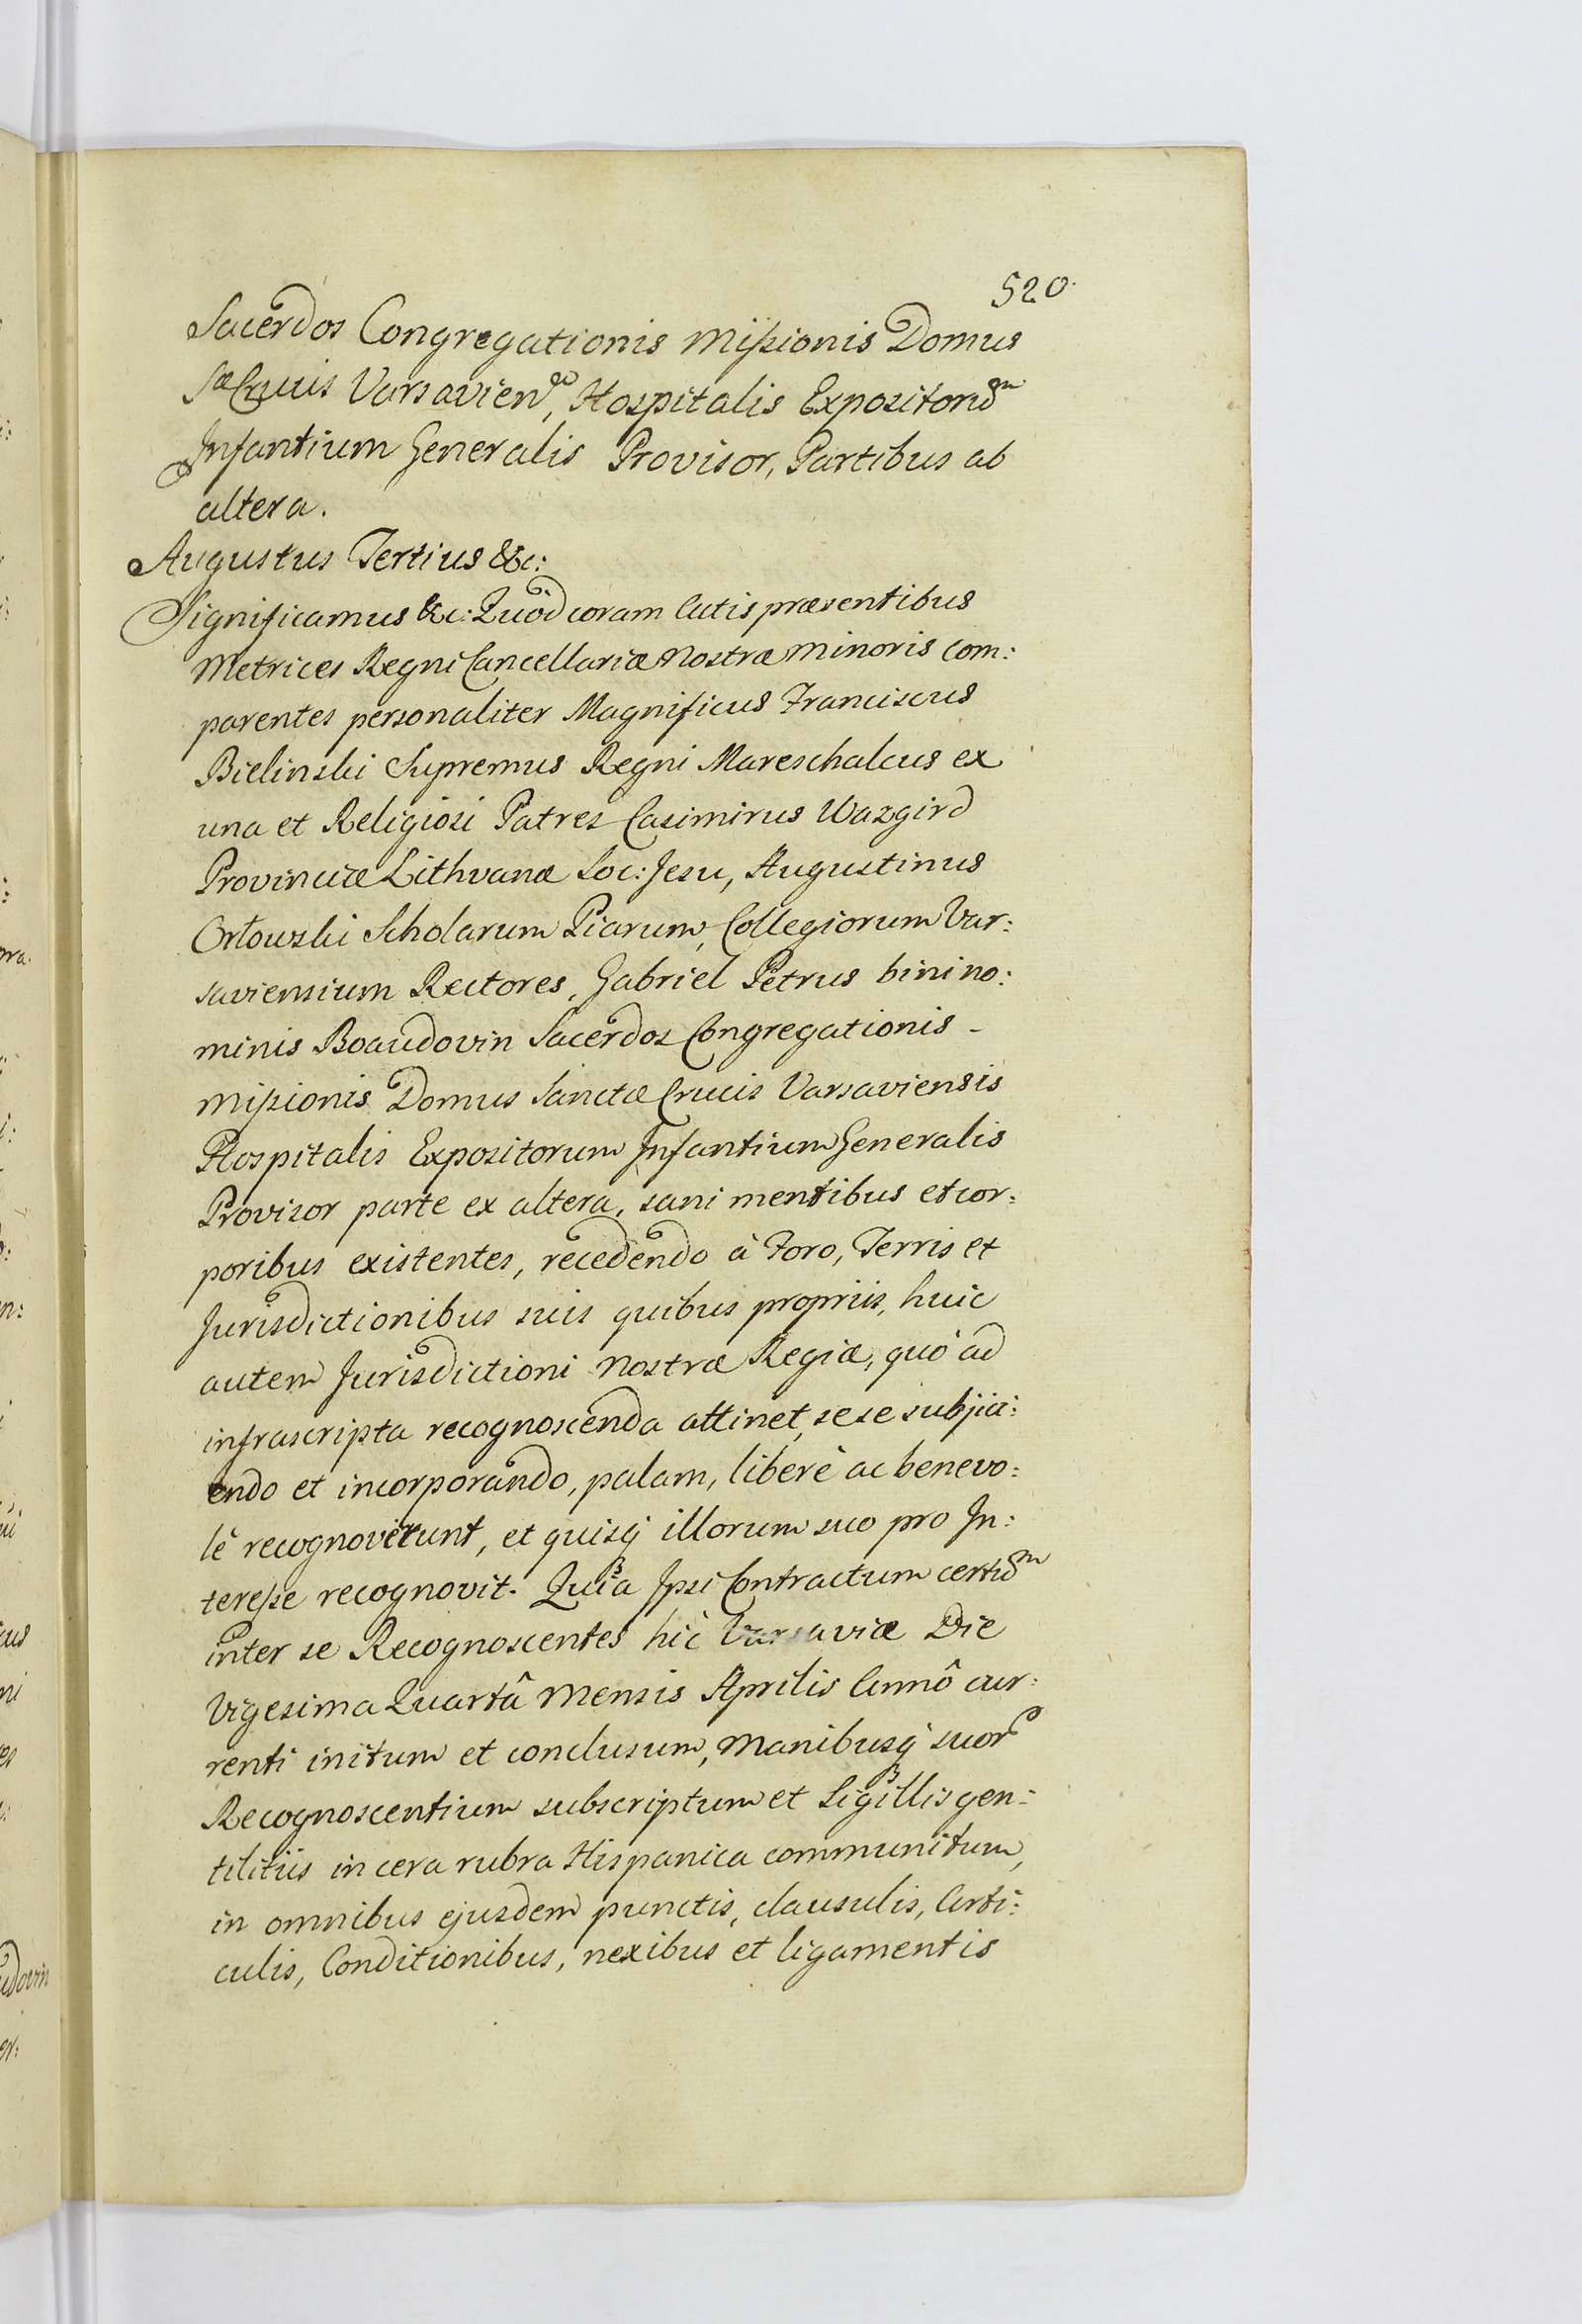 520.
Sacerdos Congregationis Missionis Domus
Sæ Crucis Varsavien, Hospitalis Expositorũm
Infantium Generalis Provisor, Partibus ab
altera.
Augustus Tertius &c:
Significamus &c: Quòd coram Actis præsentibus
Metrices Regni Cancellariæ Nostræ Minoris com:
parentes personaliter Magnificus Franciscus
Bielinski Supremus Regni Mareschalcus ex
una et Religiosi Patres Casimirus Wazgird
Provinciæ Lithvanæ Soc: Jesu, Augustinus
Orłowski Scholarum Piarum, Collegiorum Var:
saviensium Rectores, Gabriel Petrus bini no:
minis Boaudovin Sacerdos Congregationis -
Missionis Domus Sanctæ Crucis Varsaviensis
Hospitalis Expositorum Infantium Generalis
Provisor parte ex altera, sani mentibus et cor:
poribus existentes, recedendo à Foro, Terris et
Jurisdictionibus suis quibus propriis, huic
autem Jurisdictioni Nostræ Regiæ, quò ad
infrascripta recognoscenda attinet, sese subjici:
endo et incorporando, palam, liberè ac benevo:
lè recognoverunt, et quisq́ illorum suo pro In:
teresse recognovit. Quia Ipsi Contractum certũm
inter se Recognoscentes hic Varsaviæ Die
Vigesima Quartâ Mensis Aprilis Annô cur:
renti initum et conclusum, Manibusq́ suor
Recognoscentium subscriptum et Sigillis gen:
tilitiis in cera rubra Hispanica communitum,
in omnibus ejusdem punctis, clausulis, Arti:
culis, Conditionibus, nexibus et ligamentis